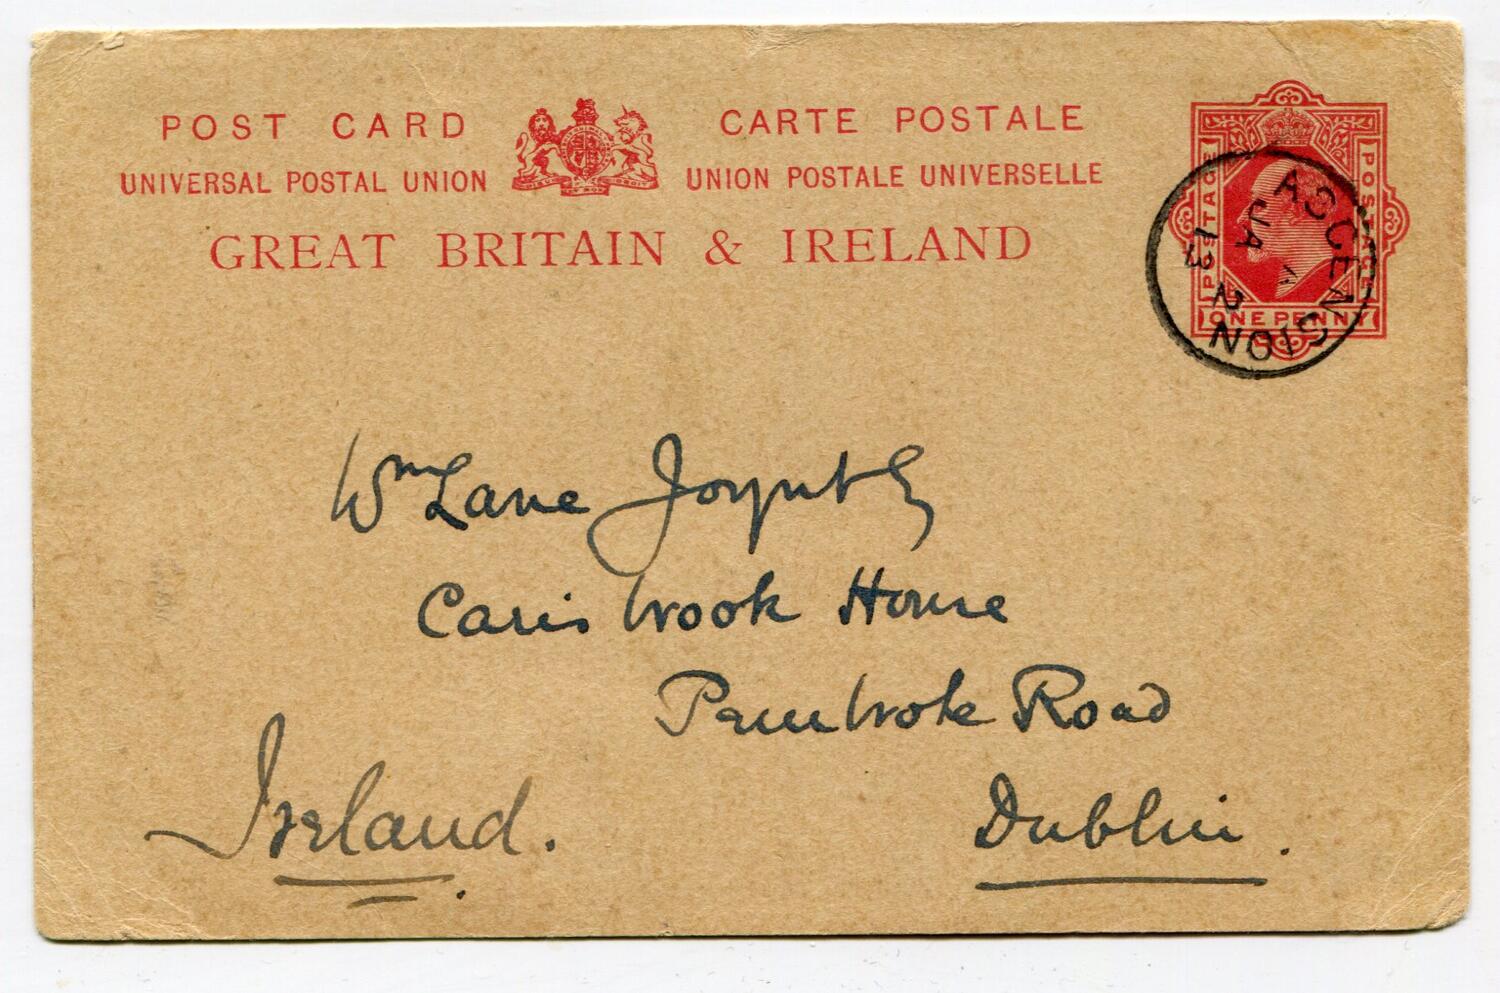 POST CARD
CARTE POSTALE
UNIVERSAL POSTAL UNION
UNION POSTALE UNIVERSELLE
GREAT BRITAIN & IRELAND
POSTAGE
POSTAGE
ONE PENNY
ASCENSION
JA 2
13
Wm Lane Joynt
Carisbrook House
Pembroke Road
Dublin.
Ireland.